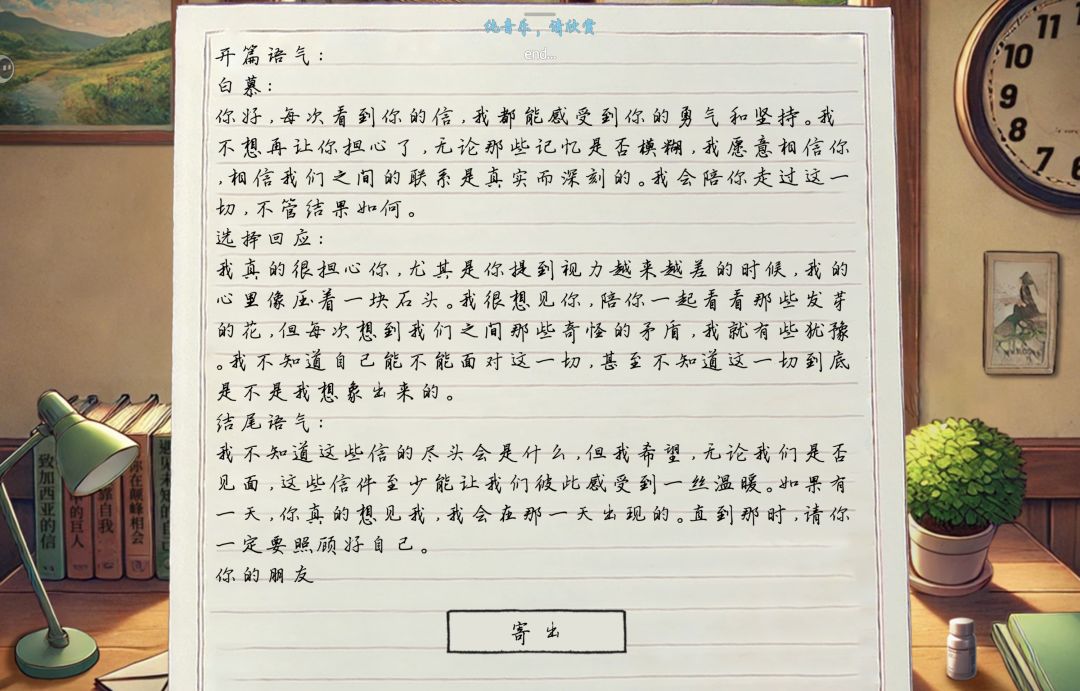 纯音乐，请欣赏
end...
开篇语气:
白慕:
你好,每次看到你的信,我都能感受到你的勇气和坚持。我
不想再让你担心了,无论那些记忆是否模糊,我愿意相信你
,相信我们之间的联系是真实而深刻的。我会陪你走过这一
切,不管结果如何。
选择回应:
我真的很担心你,尤其是你提到视力越来越差的时候,我的
心里像压着一块石头。我很想见你,陪你一起看看那些发芽
的花,但每次想到我们之间那些奇怪的矛盾,我就有些犹豫
。我不知道自己能不能面对这一切,甚至不知道这一切到底
是不是我想象出来的。
结尾语气:
我不知道这些信的尽头会是什么,但我希望,无论我们是否
见面,这些信件至少能让我们彼此感受到一丝温暖。如果有
一天,你真的想见我,我会在那一天出现的。直到那时,请你
一定要照顾好自己。
你的朋友
寄出
致加西亚的信
的巨人
靠自我
你在颠峰相会
遇见未知的自己
11
10
9
8
7
6